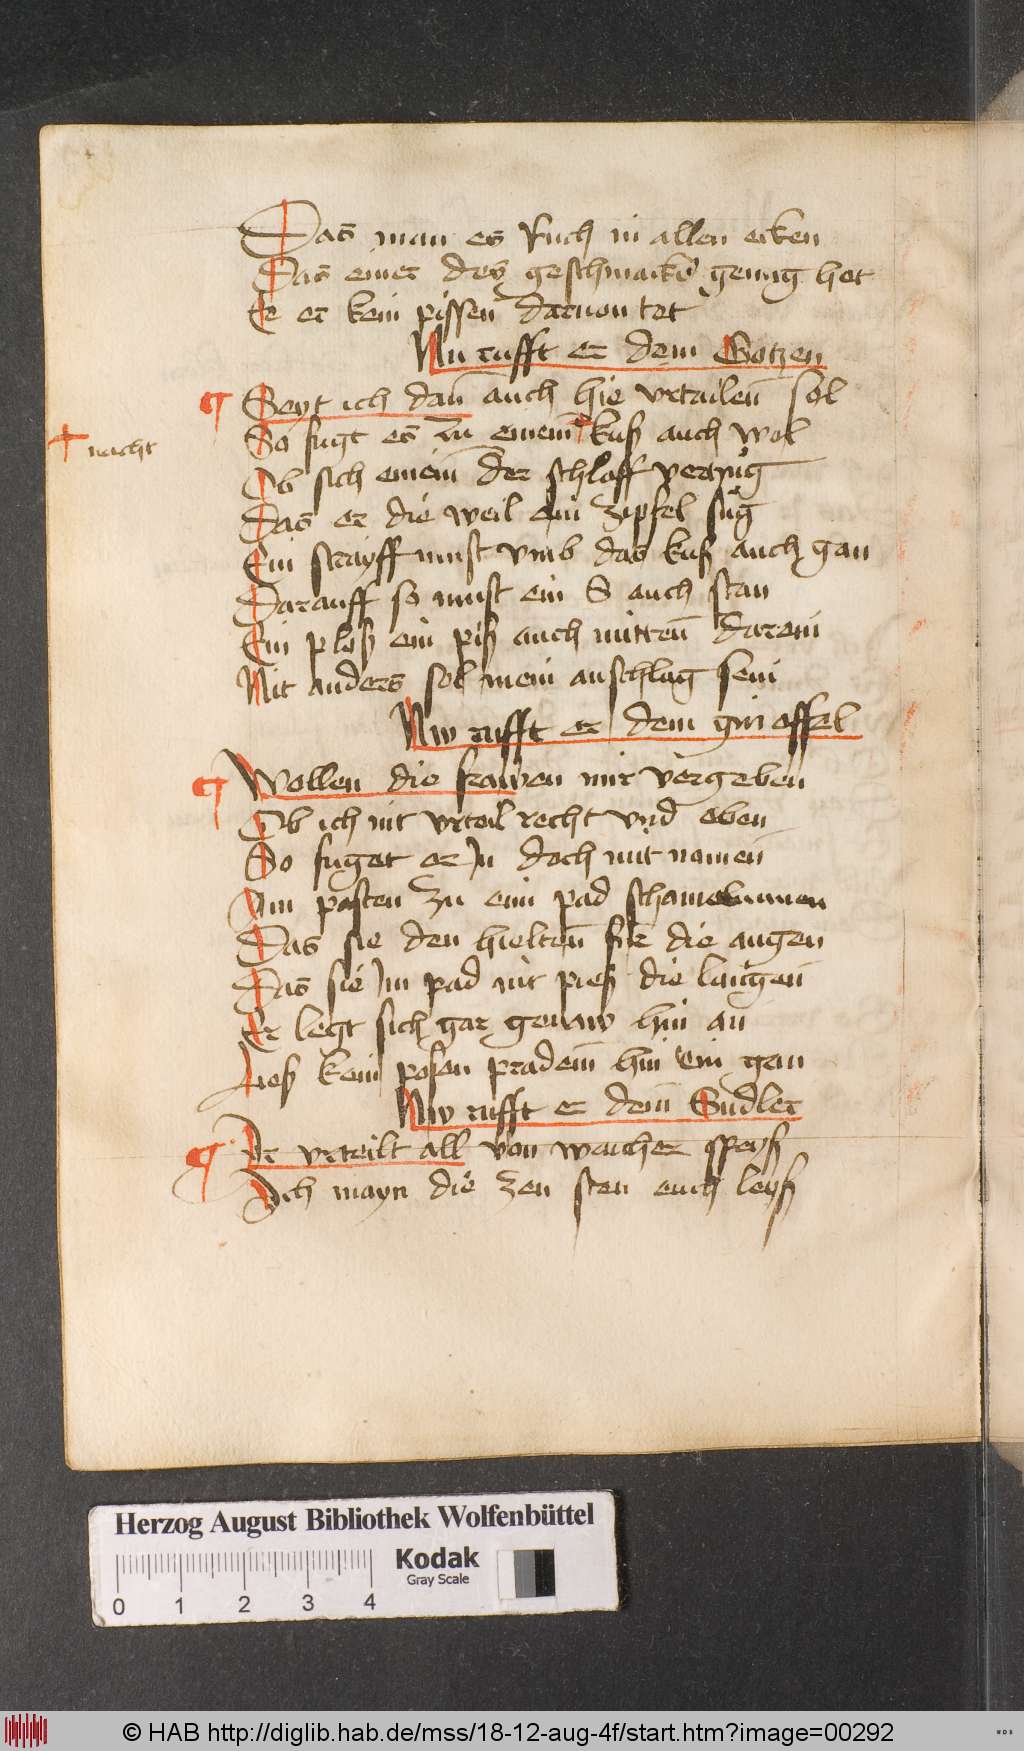 Das man es Ruch in allen ecken
Das einer des geschmacks genug het
Er er kein pissen daruon tet
Nu rufft er dem Gotzen
¶ Seyt ich dan auch hie vrtailen sol
So fugt es zu einem kuß auch wol
nacht
Ob sich einem der schloff verzug
Das er die weil ein zipfel sug
Ein strayff must vmb das kuß auch gan
Darauff so must ein S auch stan
Ein ploß ein piß auch mitten darein
Nit anders sol mein anschlag sein
Nw rufft er dem gin offel
¶ Wollen die frawen mir vergeben
Ob ich nit vrteil recht vnd eben
So fuget er Jn doch mit namen
Am pasten zu eim pad
Das sie den hielten für die augen
Das sie Jm pad nit pieß die laugen
Er legt sich gar genaw hin an
Ließ kein posen pradem hin ein gan
Nw rufft er dem Sudler
¶ Ir vrteilt all von waicher speyß
Ich mayn die zen sten euch leyß
Herzog August Bibliothek Wolfenbüttel
Kodak
Gray Scale
0 1 2 3 4
© HAB http://diglib.hab.de/mss/18-12-aug-4f/start.htm?image=00292